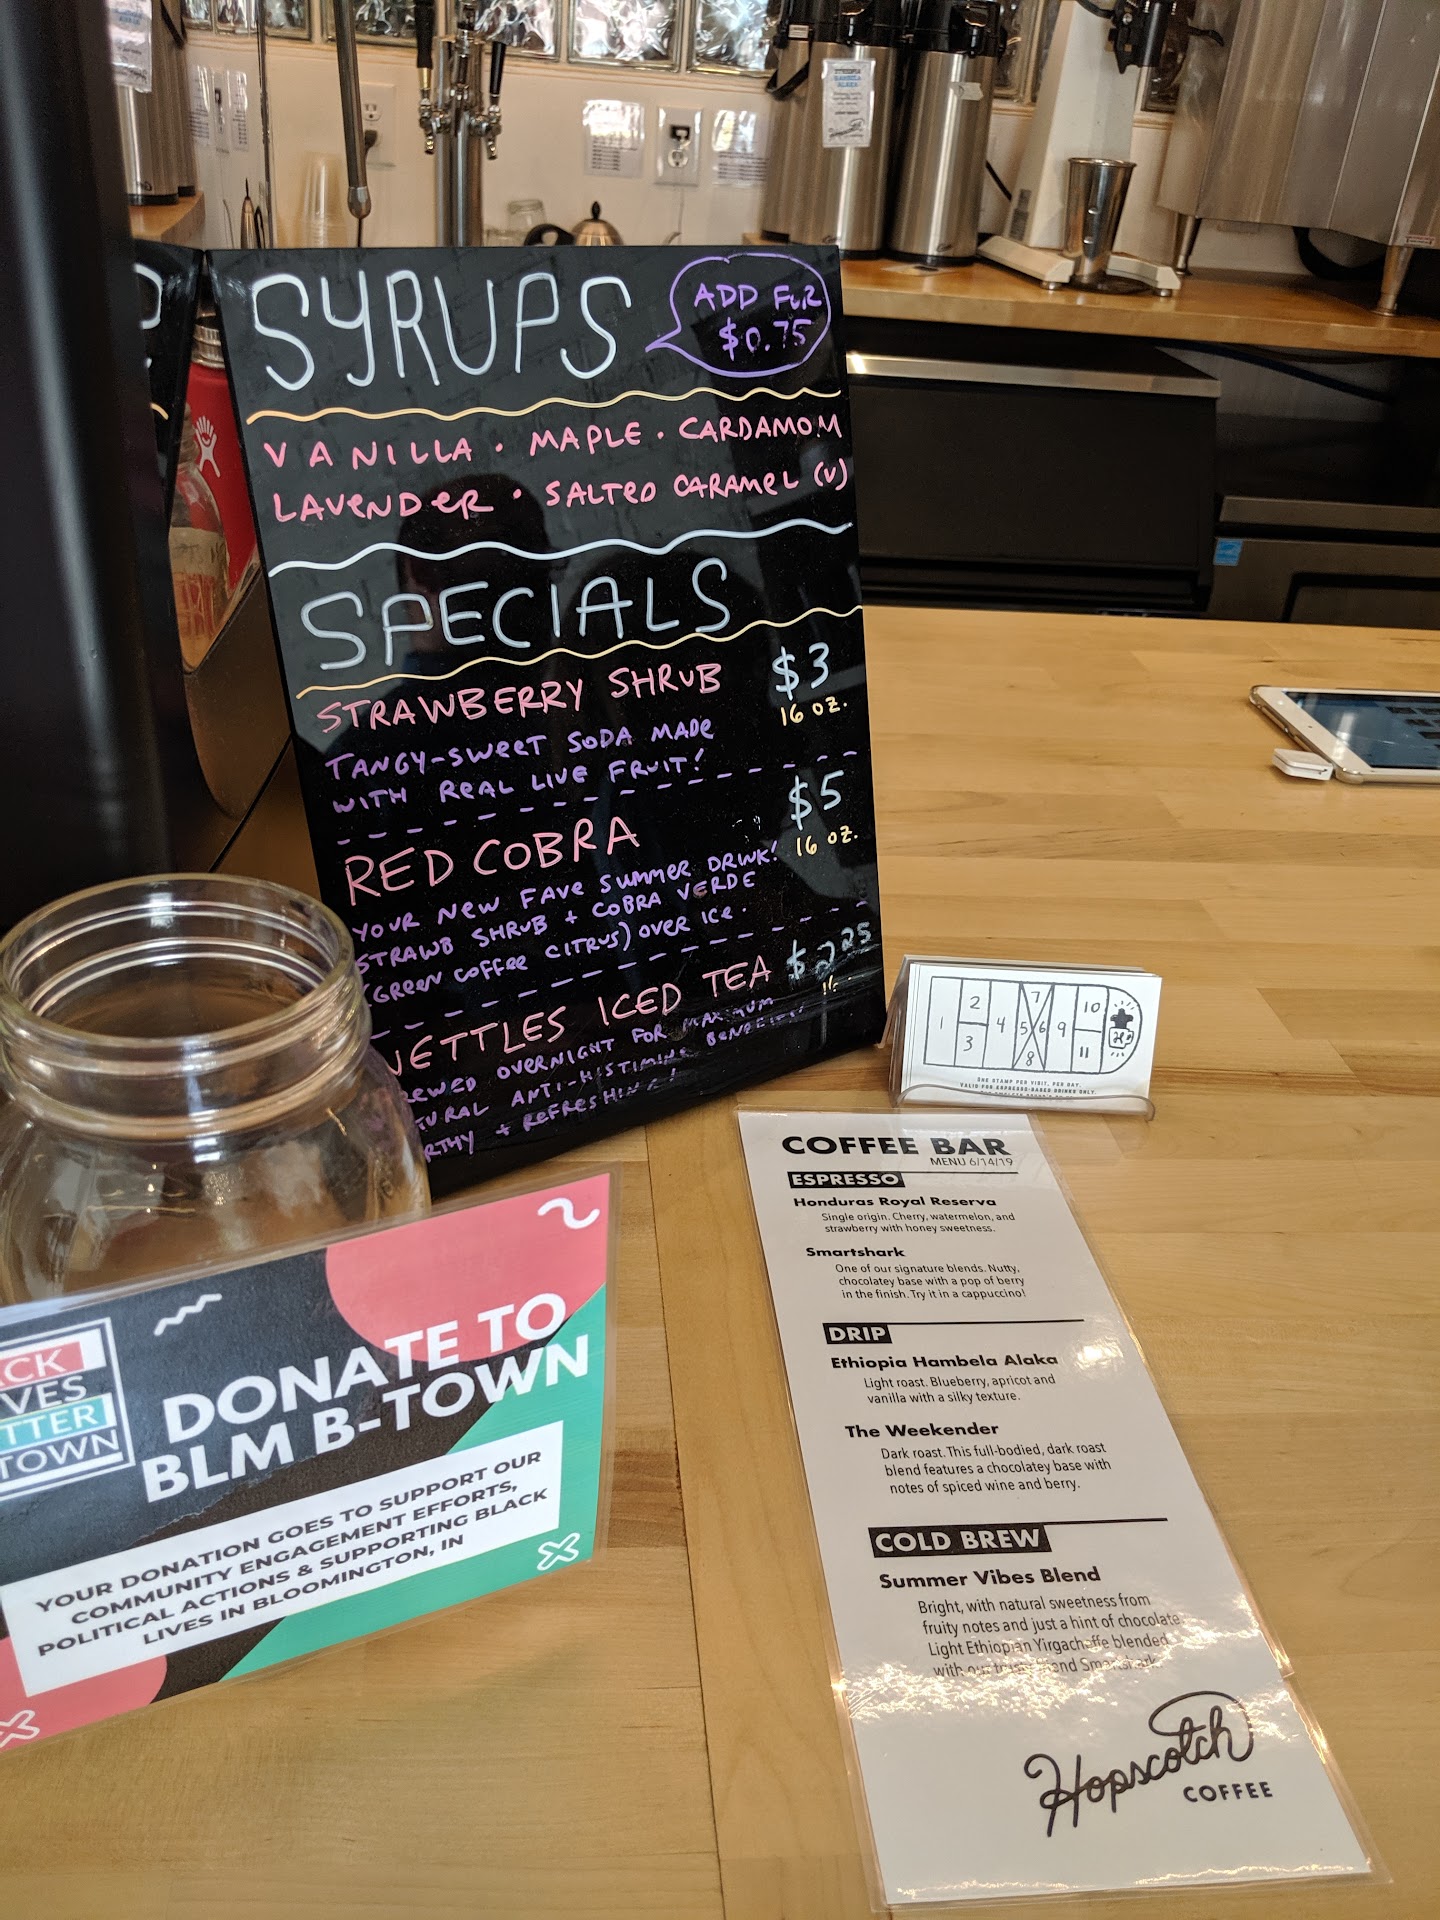 SYRUPS
ADD FOR
$0.75
VANILLA · MAPLE · CARDAMOM
LAVENDER · SALTED CARAMEL (V)
SPECIALS
STRAWBERRY SHRUB $3
16 OZ.
TANGY-SWEET SODA MADE
WITH REAL LIVE FRUIT!
RED COBRA $5
16 OZ.
YOUR NEW FAVE SUMMER DRINK!
STRAWB SHRUB + COBRA VERDE
(GREEN COFFEE CITRUS) OVER ICE.
NETTLES ICED TEA $2.25
16
EWED OVERNIGHT FOR MAXIMUM
TURAL ANTI-HISTIMINE BENEFITS
RTHY + REFRESHING!
1 2 3 4 5 6 7 8 9 10 11
ONE STAMP PER VISIT, PER DAY.
VALID FOR ESPRESSO-BASED DRINKS ONLY.
COFFEE BAR
MENU 6/14/19
ESPRESSO
Honduras Royal Reserva
Single origin. Cherry, watermelon, and
strawberry with honey sweetness.
Smartshark
One of our signature blends. Nutty,
chocolatey base with a pop of berry
in the finish. Try it in a cappuccino!
DRIP
Ethiopia Hambela Alaka
Light roast. Blueberry, apricot and
vanilla with a silky texture.
The Weekender
Dark roast. This full-bodied, dark roast
blend features a chocolatey base with
notes of spiced wine and berry.
COLD BREW
Summer Vibes Blend
Bright, with natural sweetness from
fruity notes and just a hint of chocolate.
Light Ethiopian Yirgacheffe blended
with our Smartshark.
Hopscotch
COFFEE
ACK
VES
TTER
TOWN
DONATE TO
BLM B-TOWN
YOUR DONATION GOES TO SUPPORT OUR
COMMUNITY ENGAGEMENT EFFORTS,
POLITICAL ACTIONS & SUPPORTING BLACK
LIVES IN BLOOMINGTON, IN
ETHIOPIA
HAMBELA
ALAKA